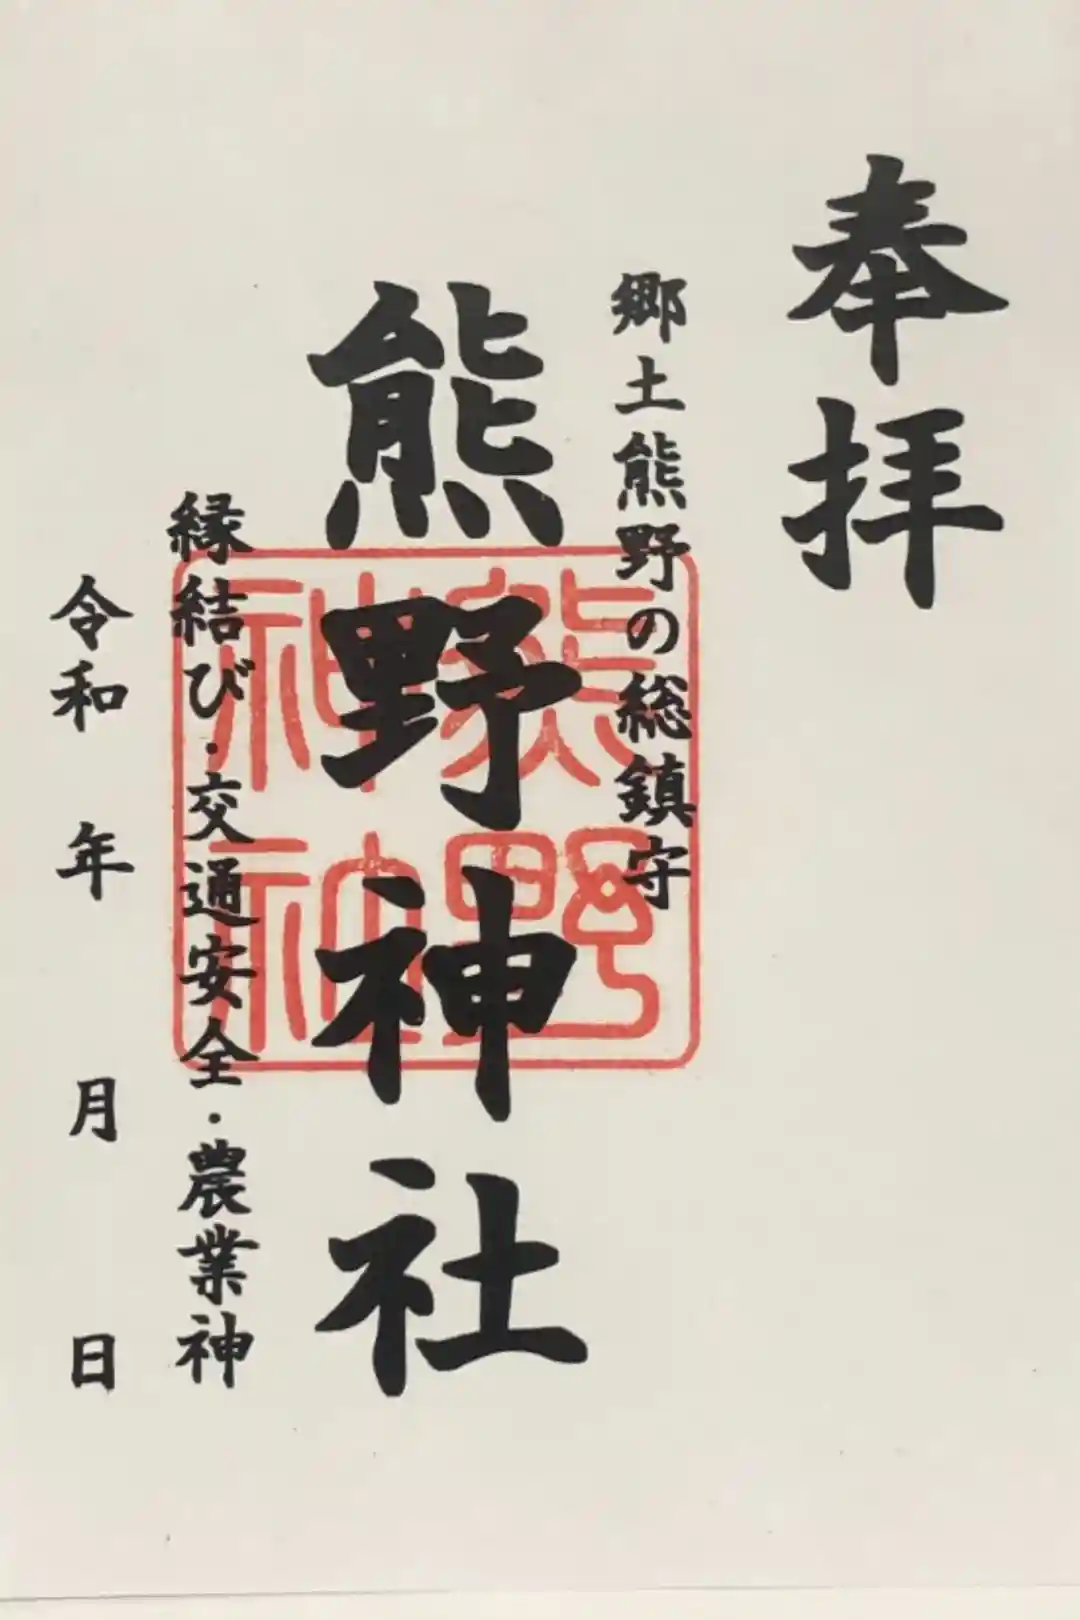 奉拝
郷土熊野の総鎮守
熊野神社
熊野神社
縁結び・交通安全・農業神
令和 年 月 日